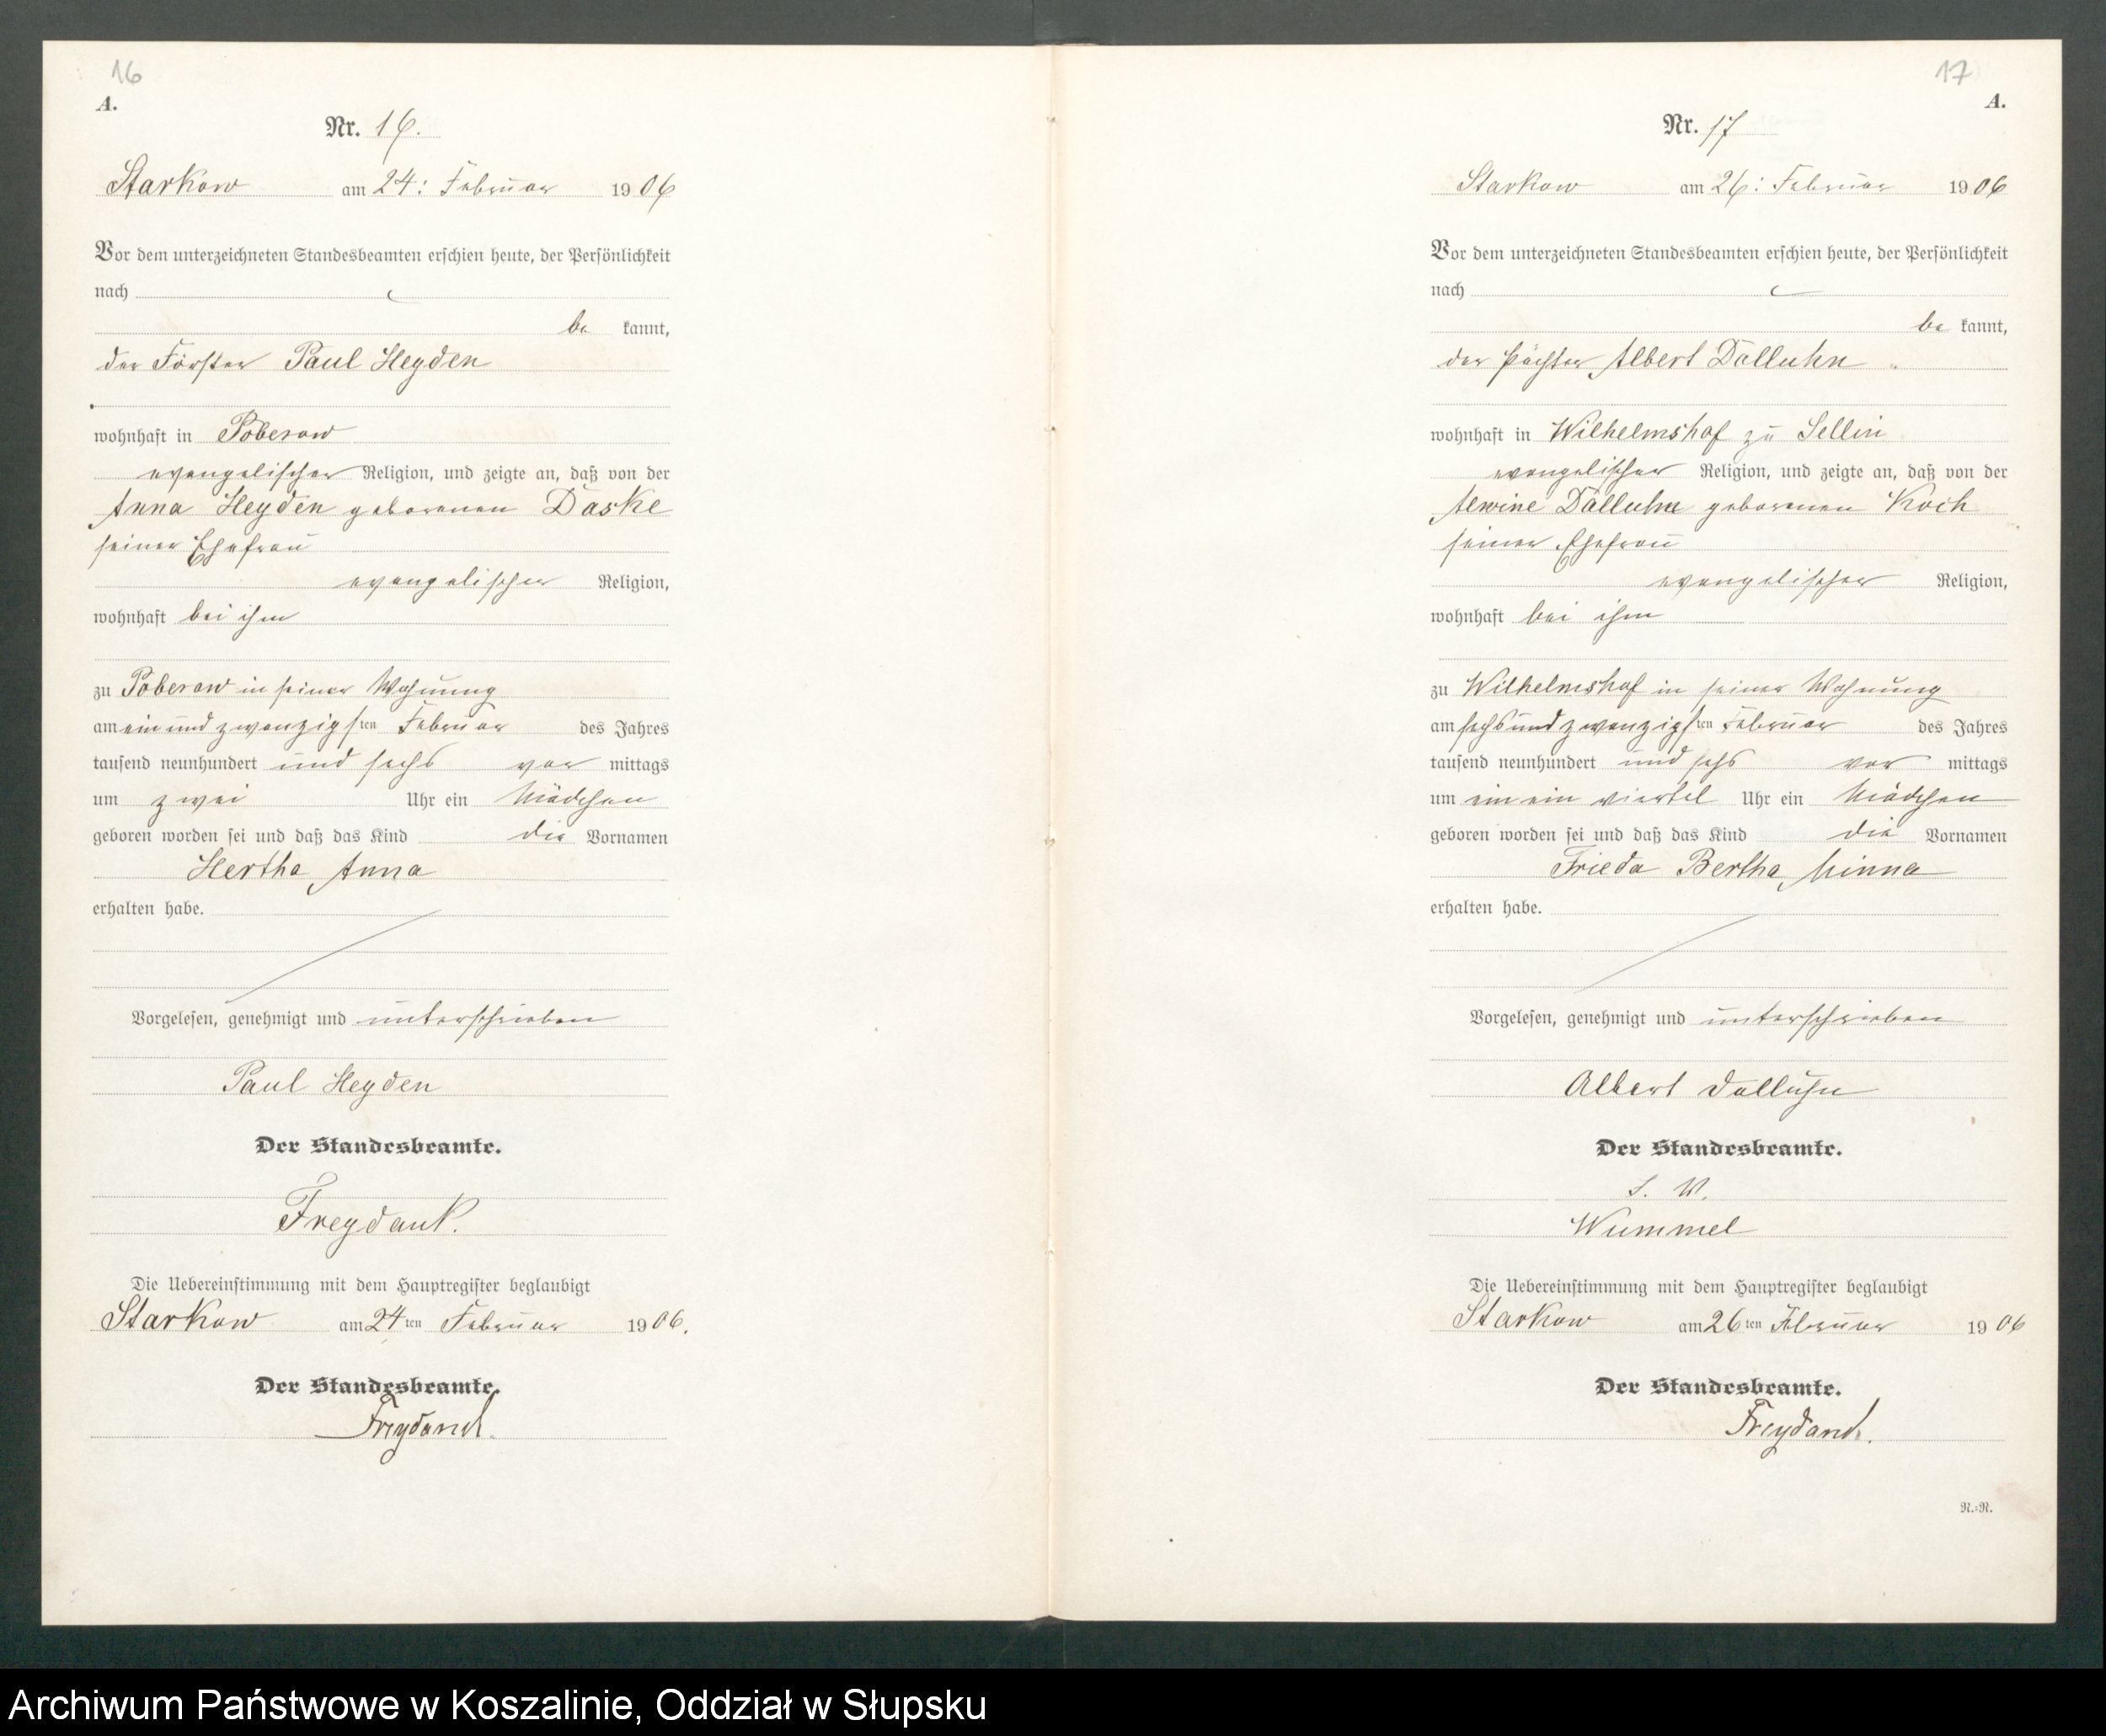 16
A.
Nr. 16.
Starkow am 24: Februar 1906
Vor dem unterzeichneten Standesbeamten erschien heute, der Persönlichkeit
nach
be kannt,
der Förster Paul Heyden
wohnhaft in Poberow
evangelischer Religion, und zeigte an, daß von der
Anna Heyden geborenen Daske
seiner Ehefrau
evangelischer Religion,
wohnhaft bei ihm
zu Poberow in seiner Wohnung
am ein und zwanzigsten Februar des Jahres
tausend neunhundert und sechs vor mittags
um zwei Uhr ein Mädchen
geboren worden sei und daß das Kind die Vornamen
Hertha Anna
erhalten habe.
Vorgelesen, genehmigt und unterschrieben
Paul Heyden
Der Standesbeamte.
Freydank.
Die Uebereinstimmung mit dem Hauptregister beglaubigt
Starkow am 24ten Februar 1906.
Der Standesbeamte.
Freydank.
17
A.
Nr. 17
Starkow am 26: Februar 1906
Vor dem unterzeichneten Standesbeamten erschien heute, der Persönlichkeit
nach
be kannt,
der Pächter Albert Dalluhn
wohnhaft in Wilhelmshof zu Sellin
evangelischer Religion, und zeigte an, daß von der
Alwine Dalluhn geborenen Koch
seiner Ehefrau
evangelischer Religion,
wohnhaft bei ihm
zu Wilhelmshof in seiner Wohnung
am sechsundzwanzigsten Februar des Jahres
tausend neunhundert und sechs vor mittags
um ein ein viertel Uhr ein Mädchen
geboren worden sei und daß das Kind die Vornamen
Frieda Bertha Minna
erhalten habe.
Vorgelesen, genehmigt und unterschrieben
Albert Dalluhn
Der Standesbeamte.
I. V.
Wummel
Die Uebereinstimmung mit dem Hauptregister beglaubigt
Starkow am 26ten Februar 1906
Der Standesbeamte.
Freydank.
N.=N.
Archiwum Państwowe w Koszalinie, Oddział w Słupsku